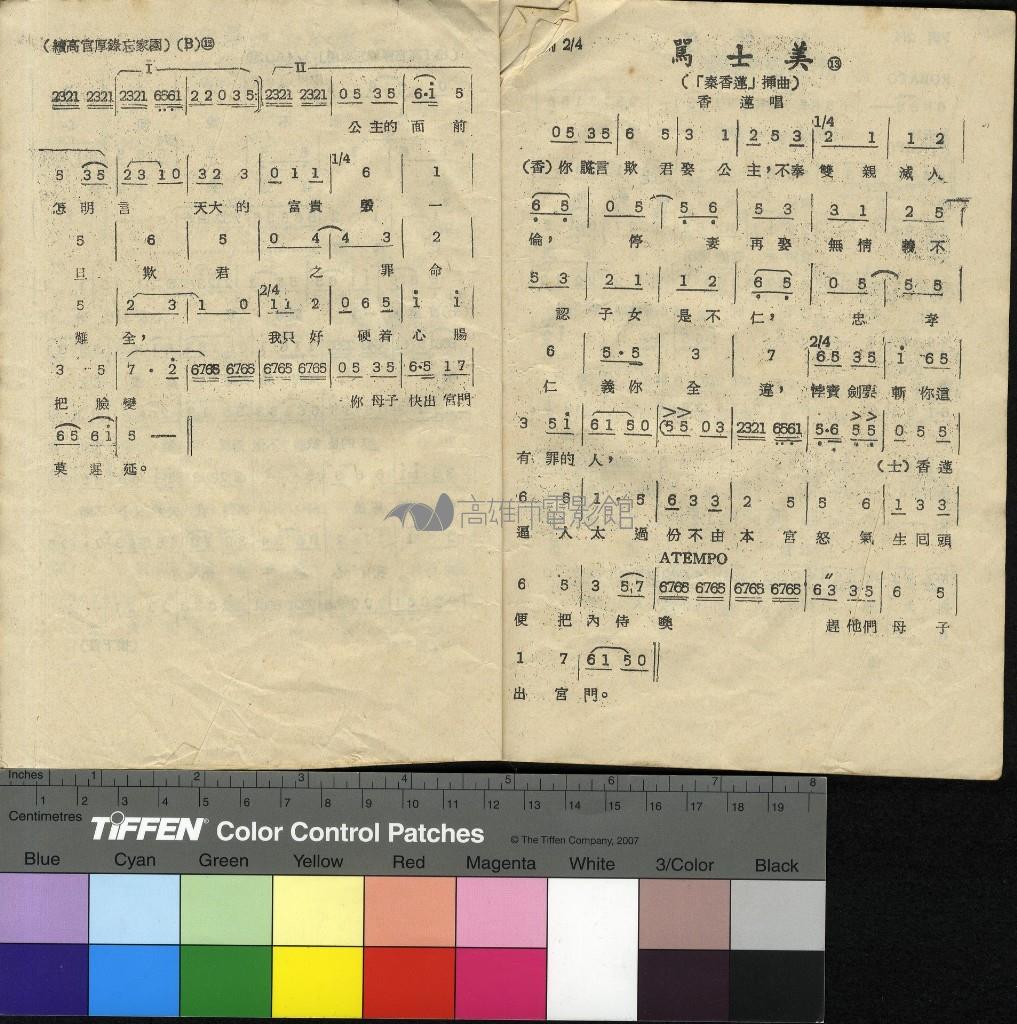 (續高官厚錄忘家國)(B)⑮
I II
2321 2321 2321 6561 2 2 0 3 5 2321 2321 0 5 3 5 6·i 5
公主的 面 前
5 3 5 2 3 1 0 3 2 3 0 1 1 1/4 6 1
怎 明 言 天大的 富 貴 毀 一
5 6 5 0 4 4 3 2
旦 欺 君 之 罪 命
5 2 3 1 0 2/4 1 1 2 0 6 5 i i
難 全, 我只好 硬着 心 腸
3 5 7 · 2 6765 6765 6765 6765 0 5 3 5 6·5 1 7
把 臉 變 你 母子 快出 宮門
6 5 6 i 5 —
莫 遲 延。
2/4
罵 士 美 ⑬
(「秦香蓮」挿曲)
香 蓮 唱
0 5 3 5 6 5 3 1 2 5 3 1/4 2 1 1 2
(香)你 謊言 欺 君 娶 公 主,不奉 雙 親 滅 人
6 5 0 5 5 6 5 3 3 1 2 5
倫, 停 妻 再 娶 無 情 義 不
5 3 2 1 1 2 6 5 0 5 5 5
認 子 女 是 不 仁, 忠 孝
6 5·5 3 7 2/4 6 5 3 5 i 6 5
仁 義你 全 違, 悖寶 劍要 斬 你這
3 5 i 6 1 5 0 5 5 0 3 2321 6561 5·6 5 5 0 5 5
有 罪的 人, (士)香蓮
6 5 1 · 5 6 3 3 2 5 5 6 1 3 3
逼 人 太 過 份 不由 本 宮 怒 氣 生 回頭
ATEMPO
6 5 3 5 7 6765 6765 6765 6765 6 3 3 5 6 5
便 把 內 侍 喚 趕 他們 母 子
1 7 6 1 5 0
出 宮 門。
高雄市電影館
Inches 1 2 3 4 5 6 7 8
1 2 3 4 5 6 7 8 9 10 11 12 13 14 15 16 17 18 19
Centimetres
TIFFEN® Color Control Patches © The Tiffen Company, 2007
Blue Cyan Green Yellow Red Magenta White 3/Color Black